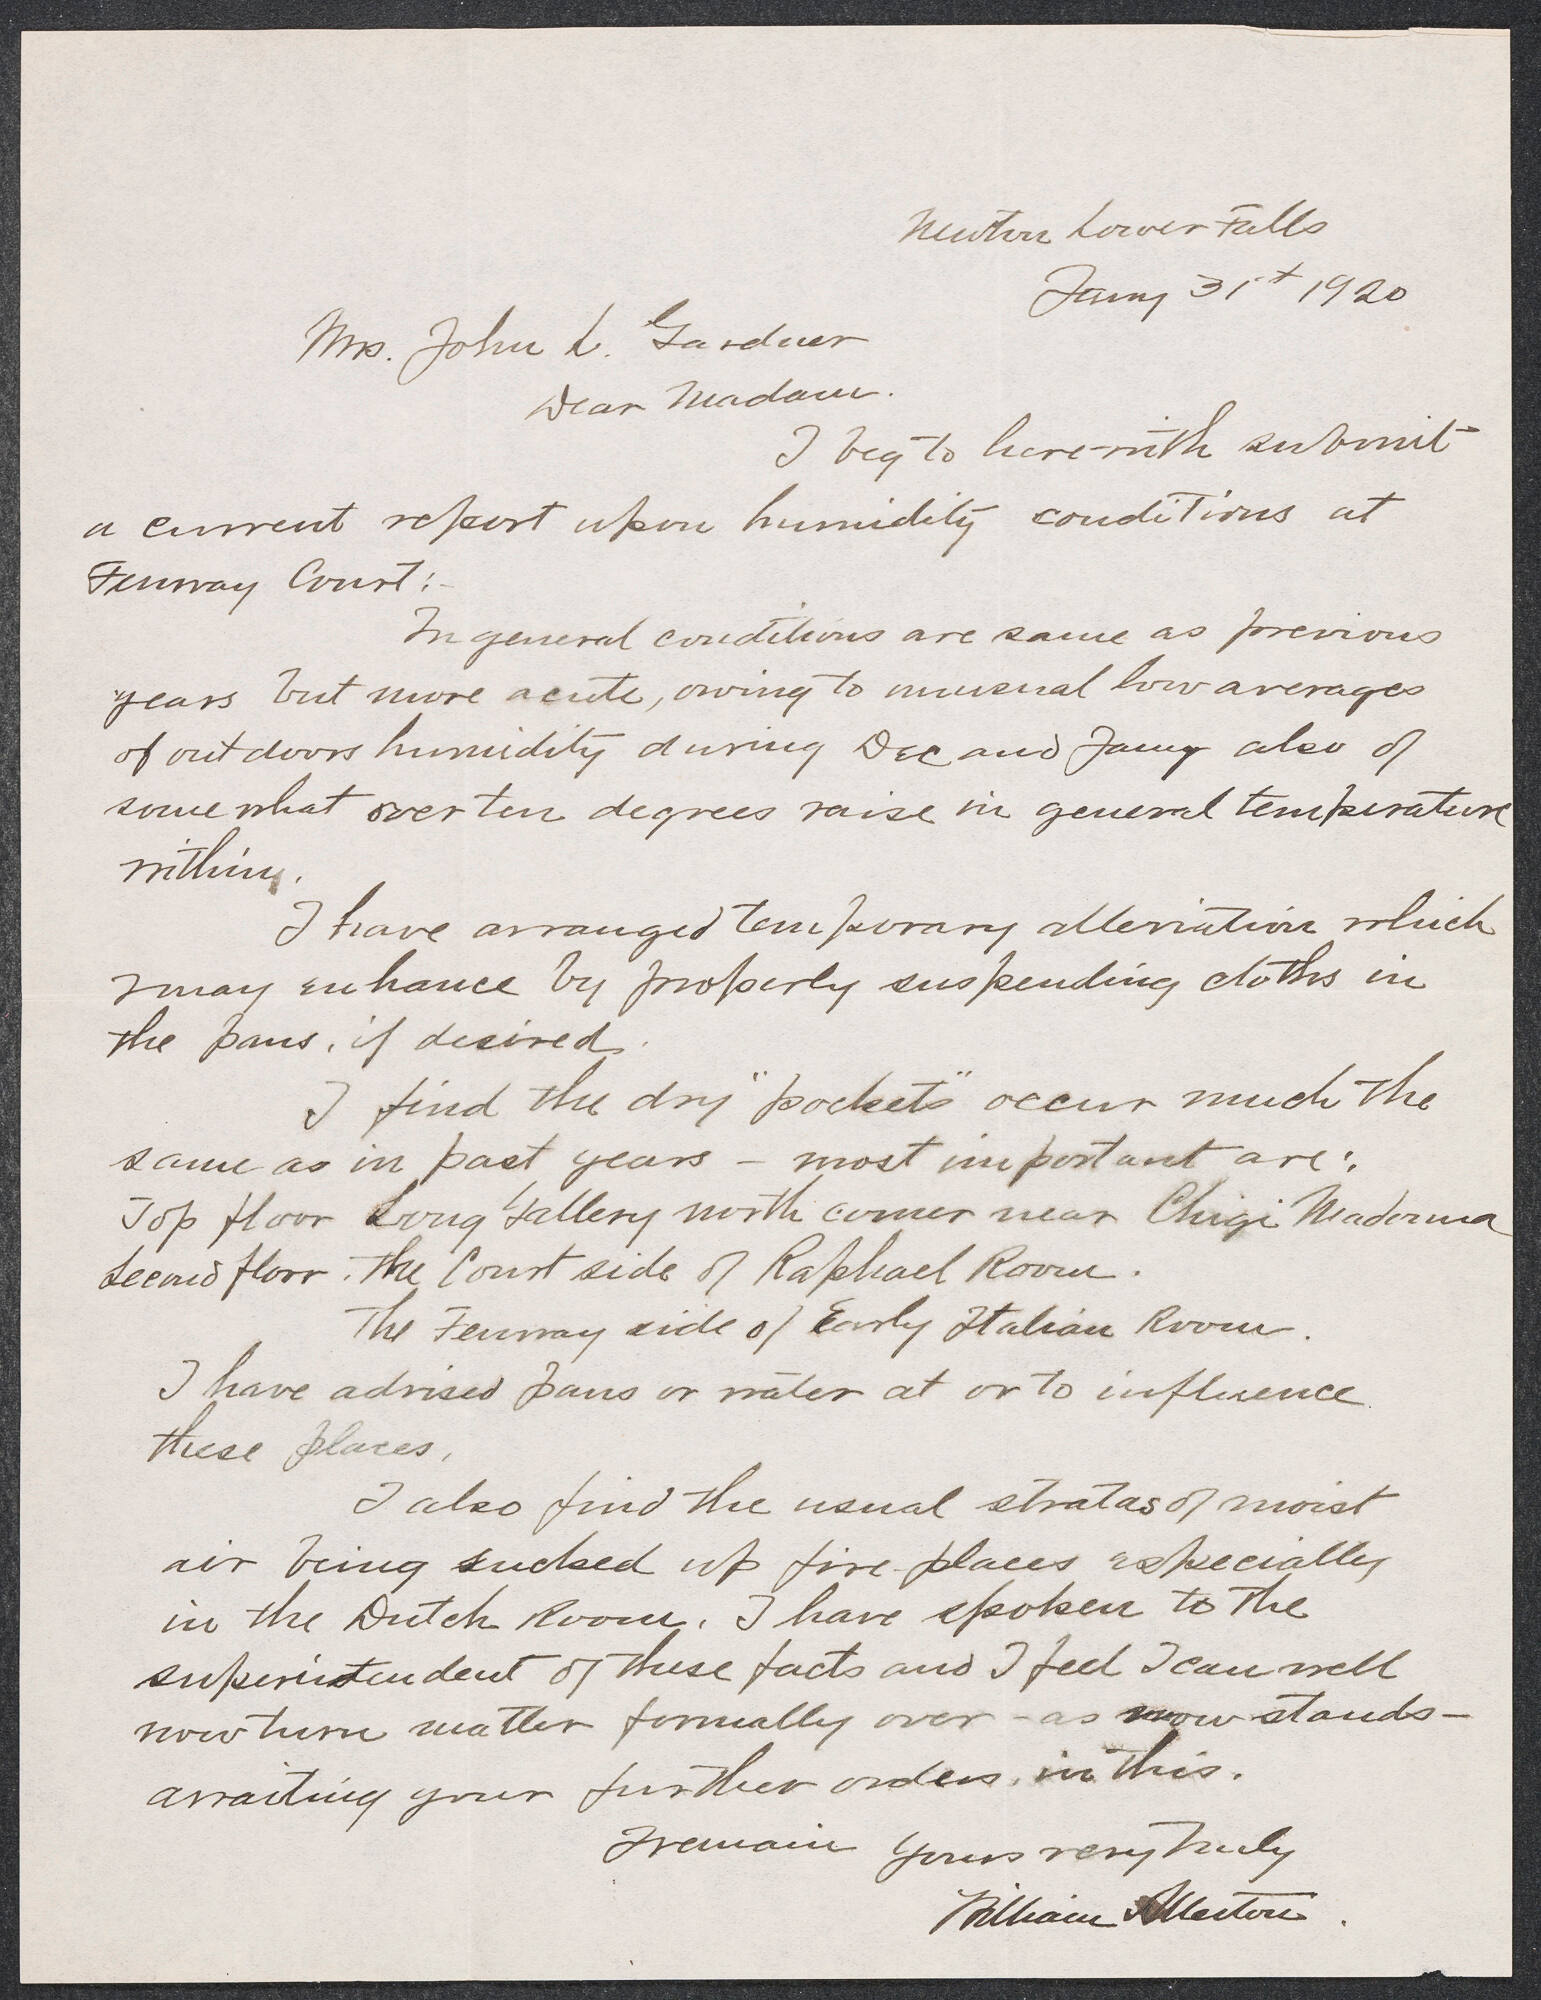 Newton Lower Falls
Jany 31st 1920
Mrs. John L. Gardner
Dear Madam.
I beg to here-with submit
a current report upon humidity conditions at
Fenway Court:-
In general conditions are same as previous
years but more acute, owing to unusual low averages
of outdoors humidity during Dec and Jany also of
somewhat over ten degrees raise in general temperature
within.
I have arranged temporary alleviation which
I may enhance by properly suspending cloths in
the pans, if desired.
I find the dry "pockets" occur much the
same as in past years - most important are:
Top floor Long Gallery north corner near Chigi Madonna
Second floor. The Court side of Raphael Room.
The Fenway side of Early Italian Room.
I have advised pans or water at or to influence
these places.
I also find the usual stratas of moist
air being sucked up fire-places especially
in the Dutch Room. I have spoken to the
superintendent of these facts and I feel I can well
now turn matter formally over - as now stands -
awaiting your further orders, in this.
I remain Yours very truly
William Allerton.